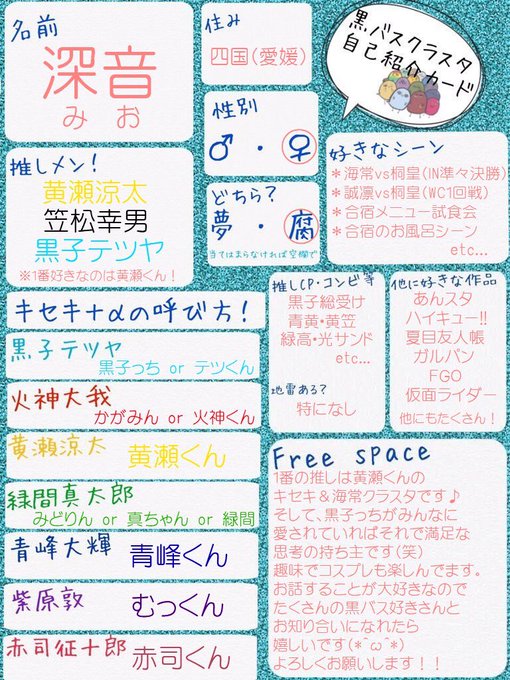 名前
深音
みお
住み
四国(愛媛)
黒バスクラスタ
自己紹介カード
性別
♂・♀
推しメン!
黄瀬涼太
笠松幸男
黒子テツヤ
※1番好きなのは黄瀬くん!
どちら?
夢・腐
当てはまらなければ空欄で
好きなシーン
*海常vs桐皇(IN準々決勝)
*誠凛vs桐皇(WC1回戦)
*合宿メニュー試食会
*合宿のお風呂シーン
etc...
キセキ+αの呼び方!
黒子テツヤ
黒子っち or テツくん
火神大我
かがみん or 火神くん
黄瀬涼太 黄瀬くん
緑間真太郎
みどりん or 真ちゃん or 緑間
青峰大輝 青峰くん
紫原敦 むっくん
赤司征十郎 赤司くん
推しCP・コンビ等
黒子総受け
青黄・黄笠
緑高・光サンド
etc...
地雷ある?
特になし
他に好きな作品
あんスタ
ハイキュー!!
夏目友人帳
ガルパン
FGO
仮面ライダー
他にもたくさん!
Free space
1番の推しは黄瀬くんの
キセキ&海常クラスタです♪
そして、黒子っちがみんなに
愛されていればそれで満足な
思考の持ち主です(笑)
趣味でコスプレも楽しんでます。
お話することが大好きなので
たくさんの黒バス好きさんと
お知り合いになれたら
嬉しいです(*^ω^*)
よろしくお願いします!!